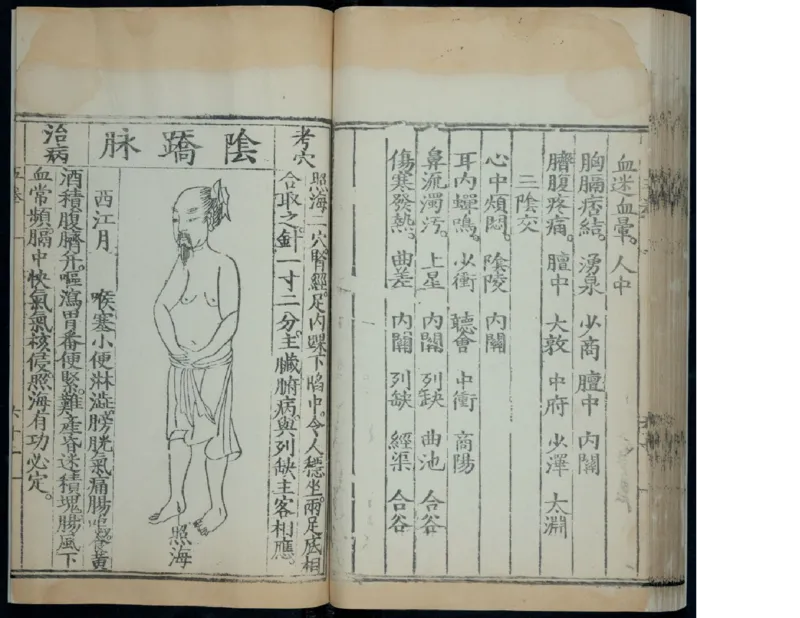 血迷血暈。人中
胸膈痞結。湧泉 少商 膻中 內關
臍腹疼痛。膻中 大敦 中府 少澤 太淵
三陰交
心中煩悶。陰陵 內關
耳內蟬鳴。少衝 聽會 中衝 商陽
鼻流濁污。上星 內關 列缺 曲池 合谷
傷寒發熱。曲差 內關 列缺 經渠 合谷
考穴
照海二穴腎經。足內踝下陷中。令人穩坐。兩足底相
合取之。針一寸二分。主臟腑病。與列缺主客相應。
陰蹻脉
照海
治病
西江月
喉塞小便淋澁。膀胱氣痛腸鳴。食黃
酒積腹臍并。嘔瀉胃番便緊。難產昏迷積塊。腸風下
血常頻。膈中快氣氣核侵。照海有功必定。